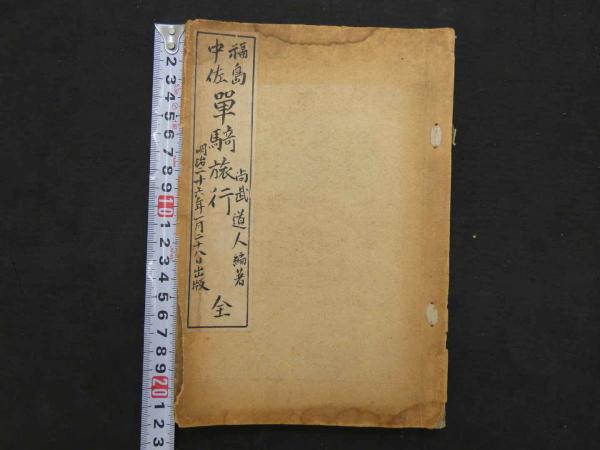 福島
中佐
單騎旅行 全
尚武道人編著
明治二十六年一月二十八日出版
2 3 4 5 6 7 8 9 10 1 2 3 4 5 6 7 8 9 20 1 2 3